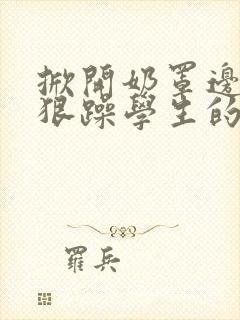 掀開奶罩邊
狠躁學生的
羅兵